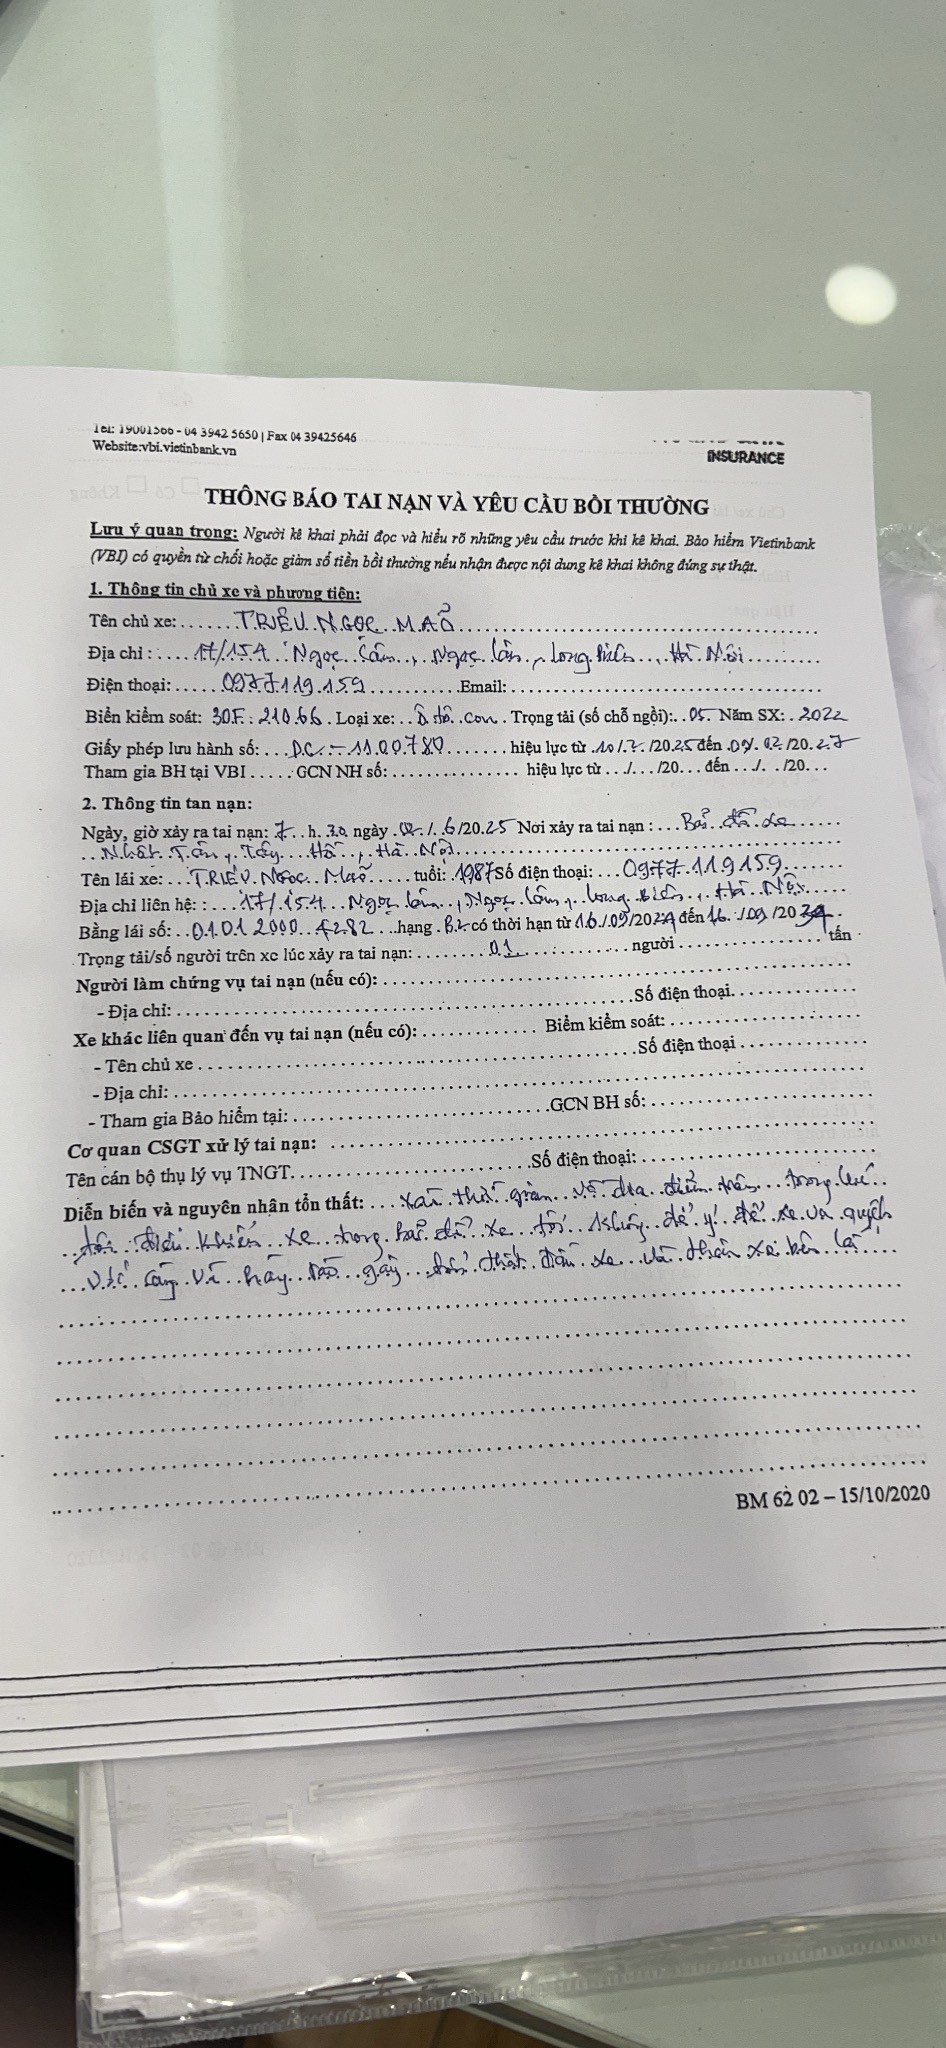 Tel: 19001566 - 04 3942 5650 | Fax 04 39425646
Website:vbi.vietinbank.vn
INSURANCE
THÔNG BÁO TAI NẠN VÀ YÊU CẦU BỒI THƯỜNG
Lưu ý quan trọng: Người kê khai phải đọc và hiểu rõ những yêu cầu trước khi kê khai. Bảo hiểm Vietinbank
(VBI) có quyền từ chối hoặc giảm số tiền bồi thường nếu nhận được nội dung kê khai không đúng sự thật.
1. Thông tin chủ xe và phương tiện:
Tên chủ xe: TRIỆU NGỌC MAO
Địa chỉ : 17/154 Ngọc Lâm, Ngọc Lâm, Long Biên, Hà Nội
Điện thoại: 0977119.159 Email:
Biển kiểm soát: 30F: 210.66. Loại xe: Ô tô con. Trọng tải (số chỗ ngồi): 05. Năm SX: 2022
Giấy phép lưu hành số: DC - 1100780 hiệu lực từ 10/2/2025 đến 09/02/2027
Tham gia BH tại VBI GCN NH số: hiệu lực từ .../.../20... đến .../.../20...
2. Thông tin tan nạn:
Ngày, giờ xảy ra tai nạn: 7 h 30 ngày 02/6/2025 Nơi xảy ra tai nạn : Bãi đỗ xe
Nhật Tân, Tây Hồ, Hà Nội
Tên lái xe: TRIỆU NGỌC Mao tuổi: 1987 Số điện thoại: 0977.119159
Địa chỉ liên hệ: : 17/154 Ngọc Lâm, Ngọc Lâm, Long Biên, Hà Nội
Bằng lái số: 01012000 4282 hạng B2 có thời hạn từ 16/09/2024 đến 16/09/2034
Trọng tải/số người trên xe lúc xảy ra tai nạn: 01 người tấn
Người làm chứng vụ tai nạn (nếu có):
- Địa chỉ: Số điện thoại
Xe khác liên quan đến vụ tai nạn (nếu có): Biểm kiểm soát:
- Tên chủ xe Số điện thoại
- Địa chỉ:
- Tham gia Bảo hiểm tại: GCN BH số:
Cơ quan CSGT xử lý tai nạn:
Tên cán bộ thụ lý vụ TNGT Số điện thoại:
Diễn biến và nguyên nhân tổn thất: Vào thời gian và địa điểm trên trong lúc
tôi điều khiển xe trong bãi đỗ xe tôi không để ý để xe va quyệt
vào hàng rào gây tổn thất đầu xe và thân xe bên lái
BM 62 02 – 15/10/2020